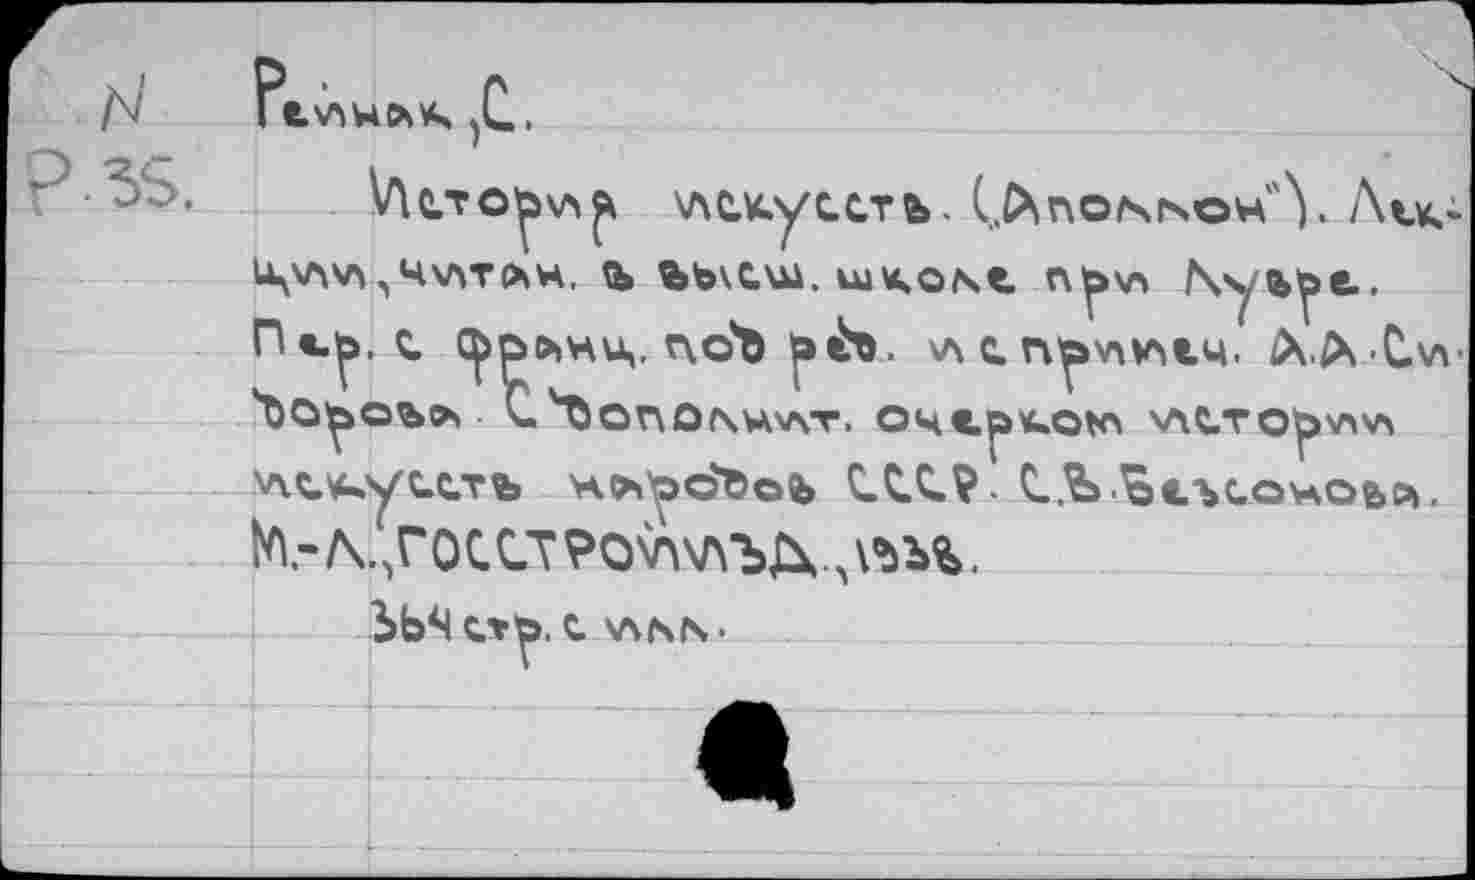 N Рейнак, С.
Р.35. История искусств. („Аполлон"). Лек-
ции, читан. в высш. школе при Лувре.
Пер. с франц. под ред. и с примеч. А.А.Си-
дорова С дополнит. очерком истории
искусств народов СССР. С.В.Безсонова.
М.-Л., ГОССТРОЙИЗД., 1938.
364 стр. с илл.